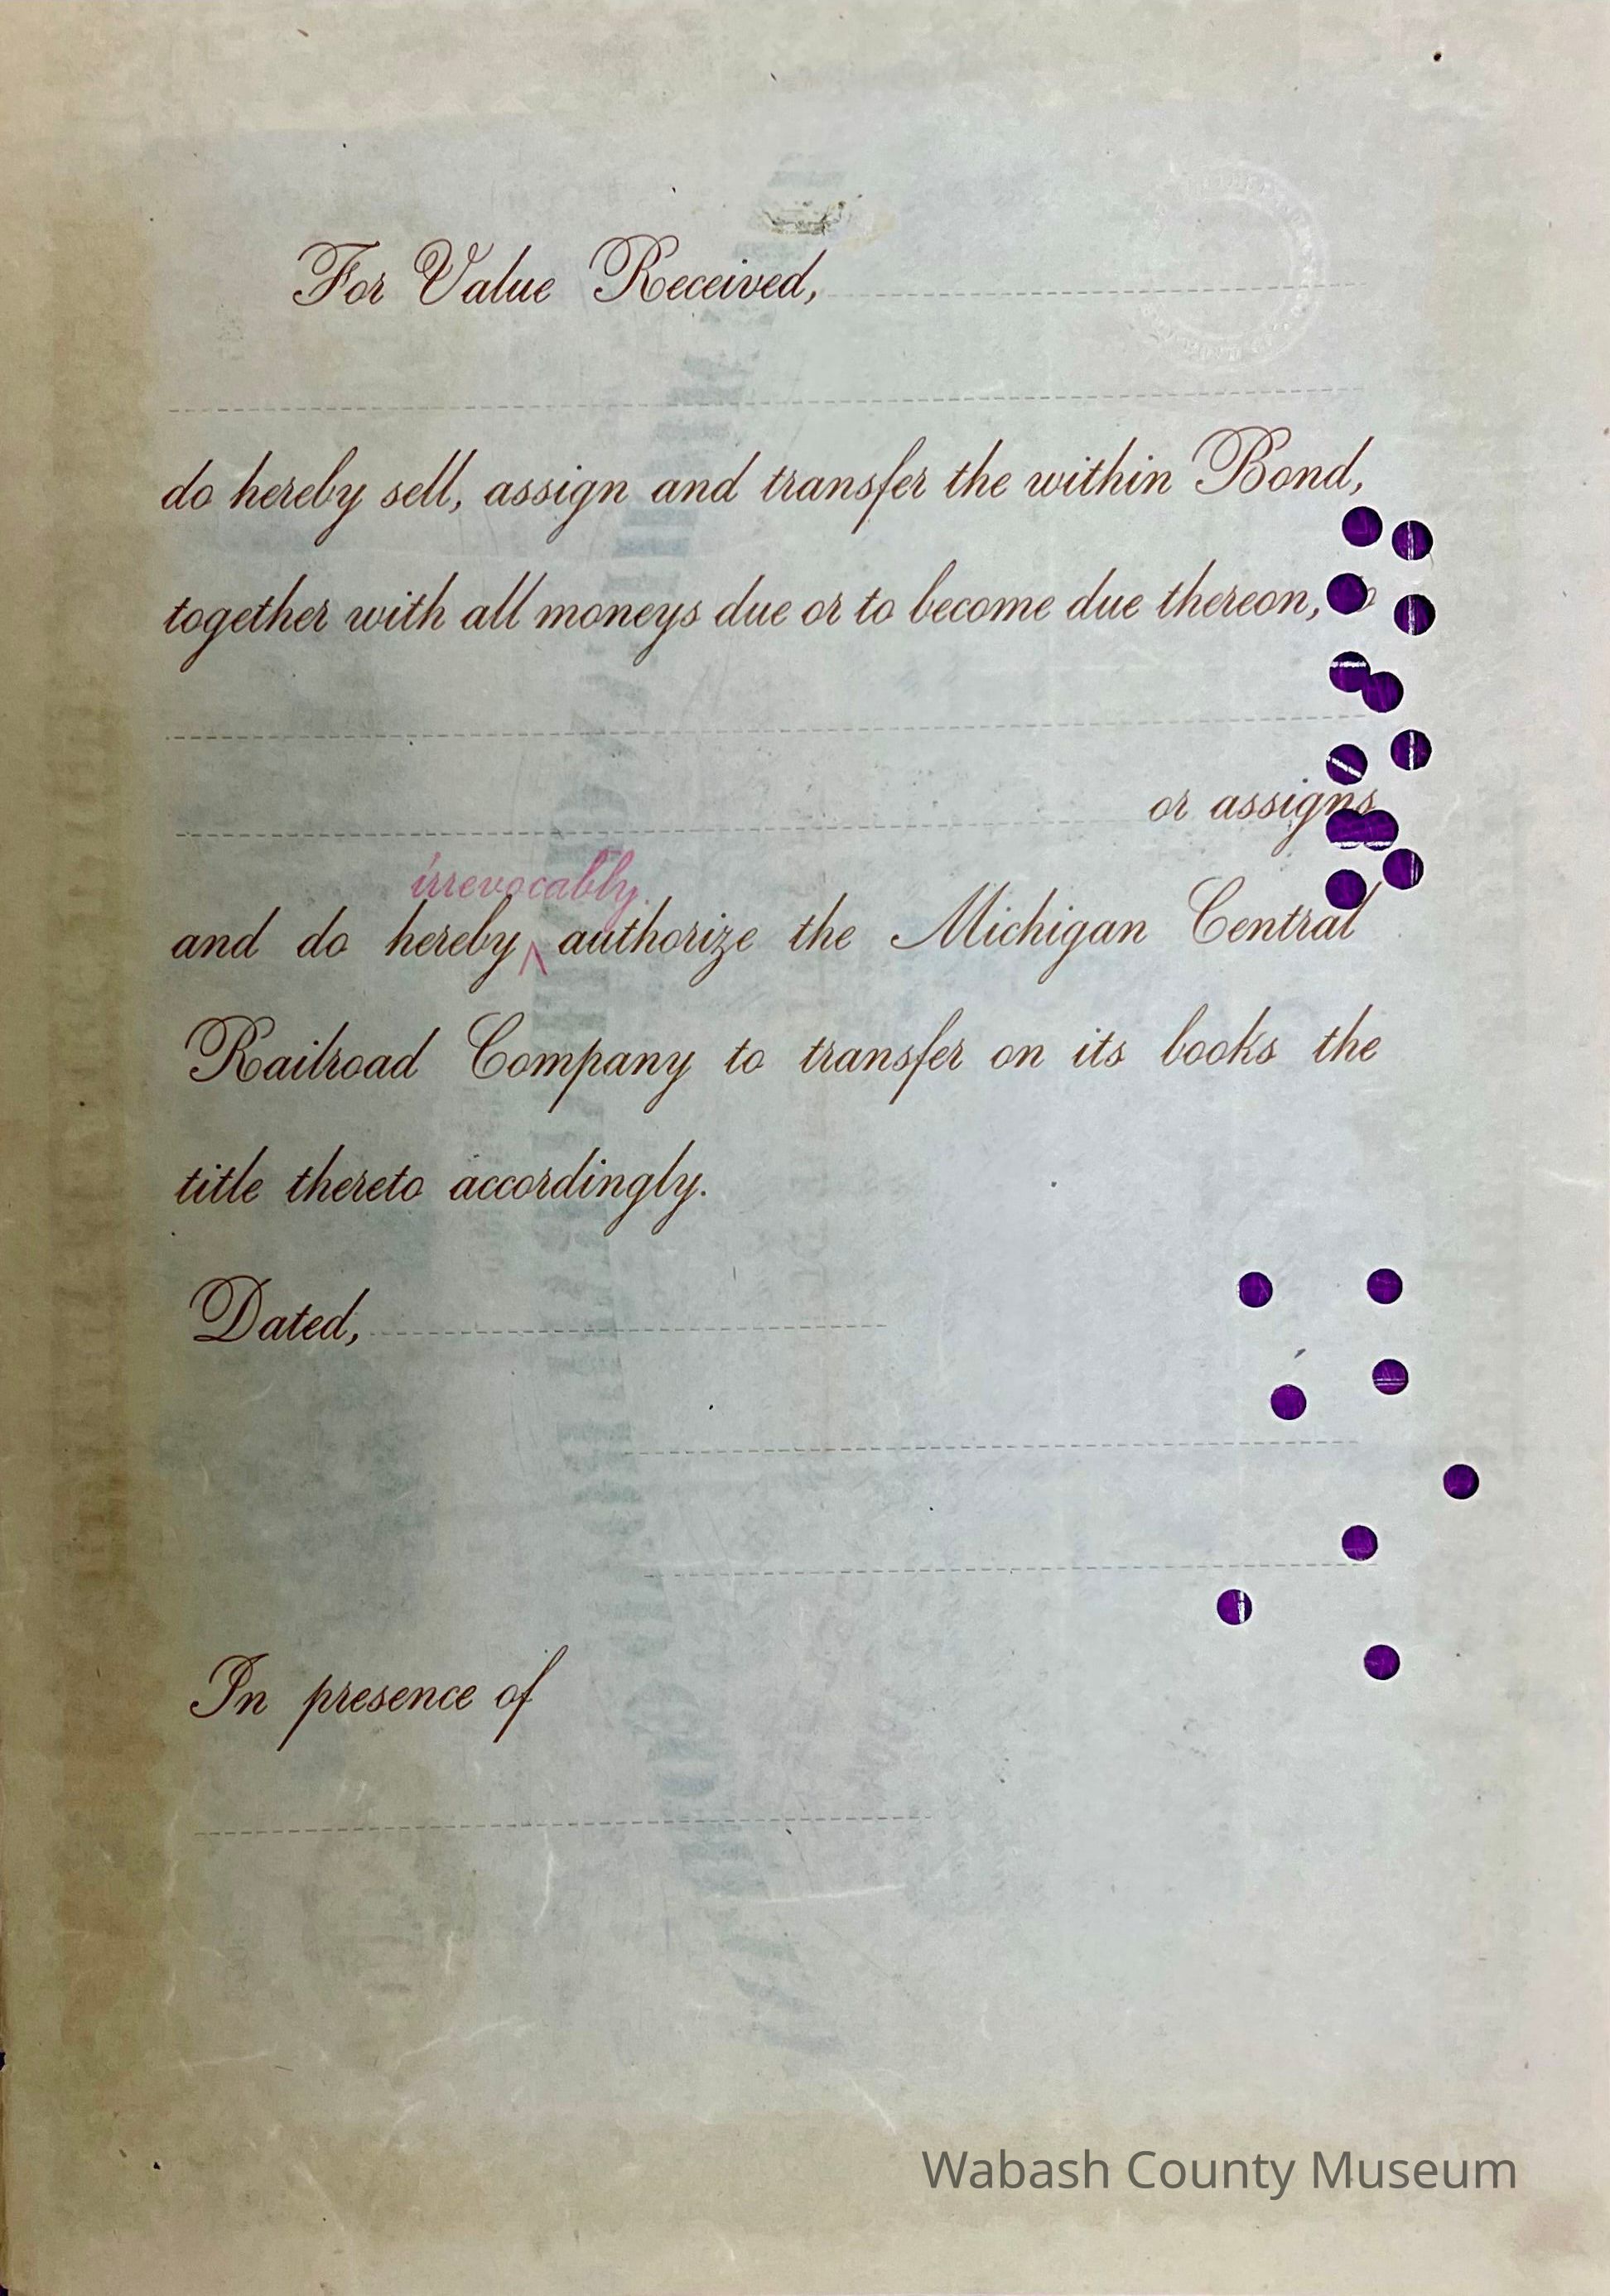 For Value Received,
do hereby sell, assign and transfer the within Bond,
together with all moneys due or to become due thereon,
or assigns
irrevocably
and do hereby ^ authorize the Michigan Central
Railroad Company to transfer on its books the
title thereto accordingly.
Dated,
In presence of
Wabash County Museum